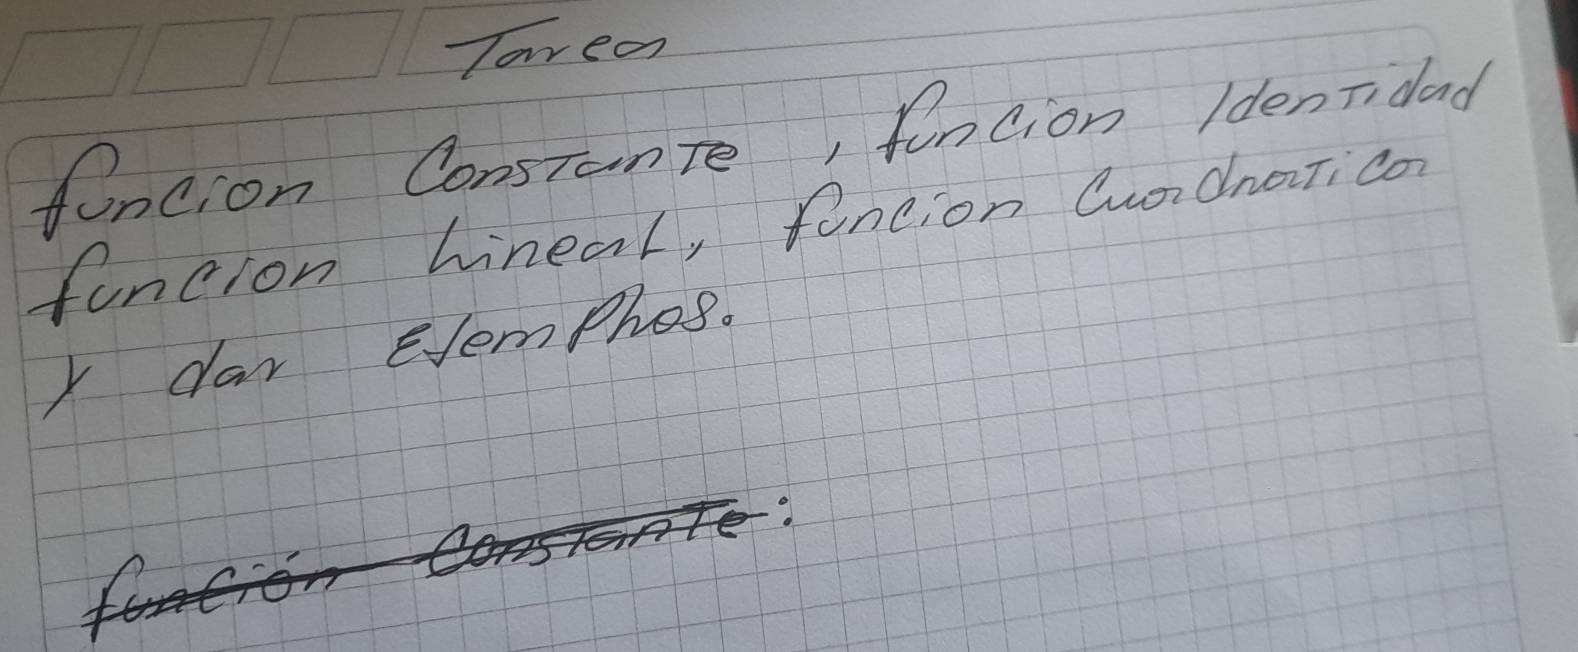 Tarea
función Constante, función Identidad
función Lineal, función Cuadratica
y dar Ejemplos.
función Constante: